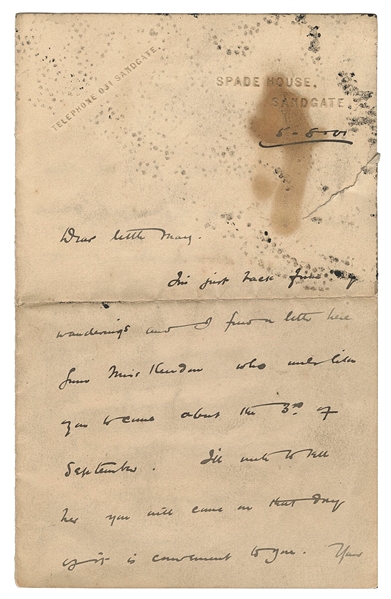 TELEPHONE 031 SANDGATE.
SPADE HOUSE,
SANDGATE.
Dear little May.
I'm just back from my
wanderings and I find a letter here
from Miss who wd like
you to come about the 3rd of
September. I'll write to tell
her you will come on that day
if it is convenient to you. Your